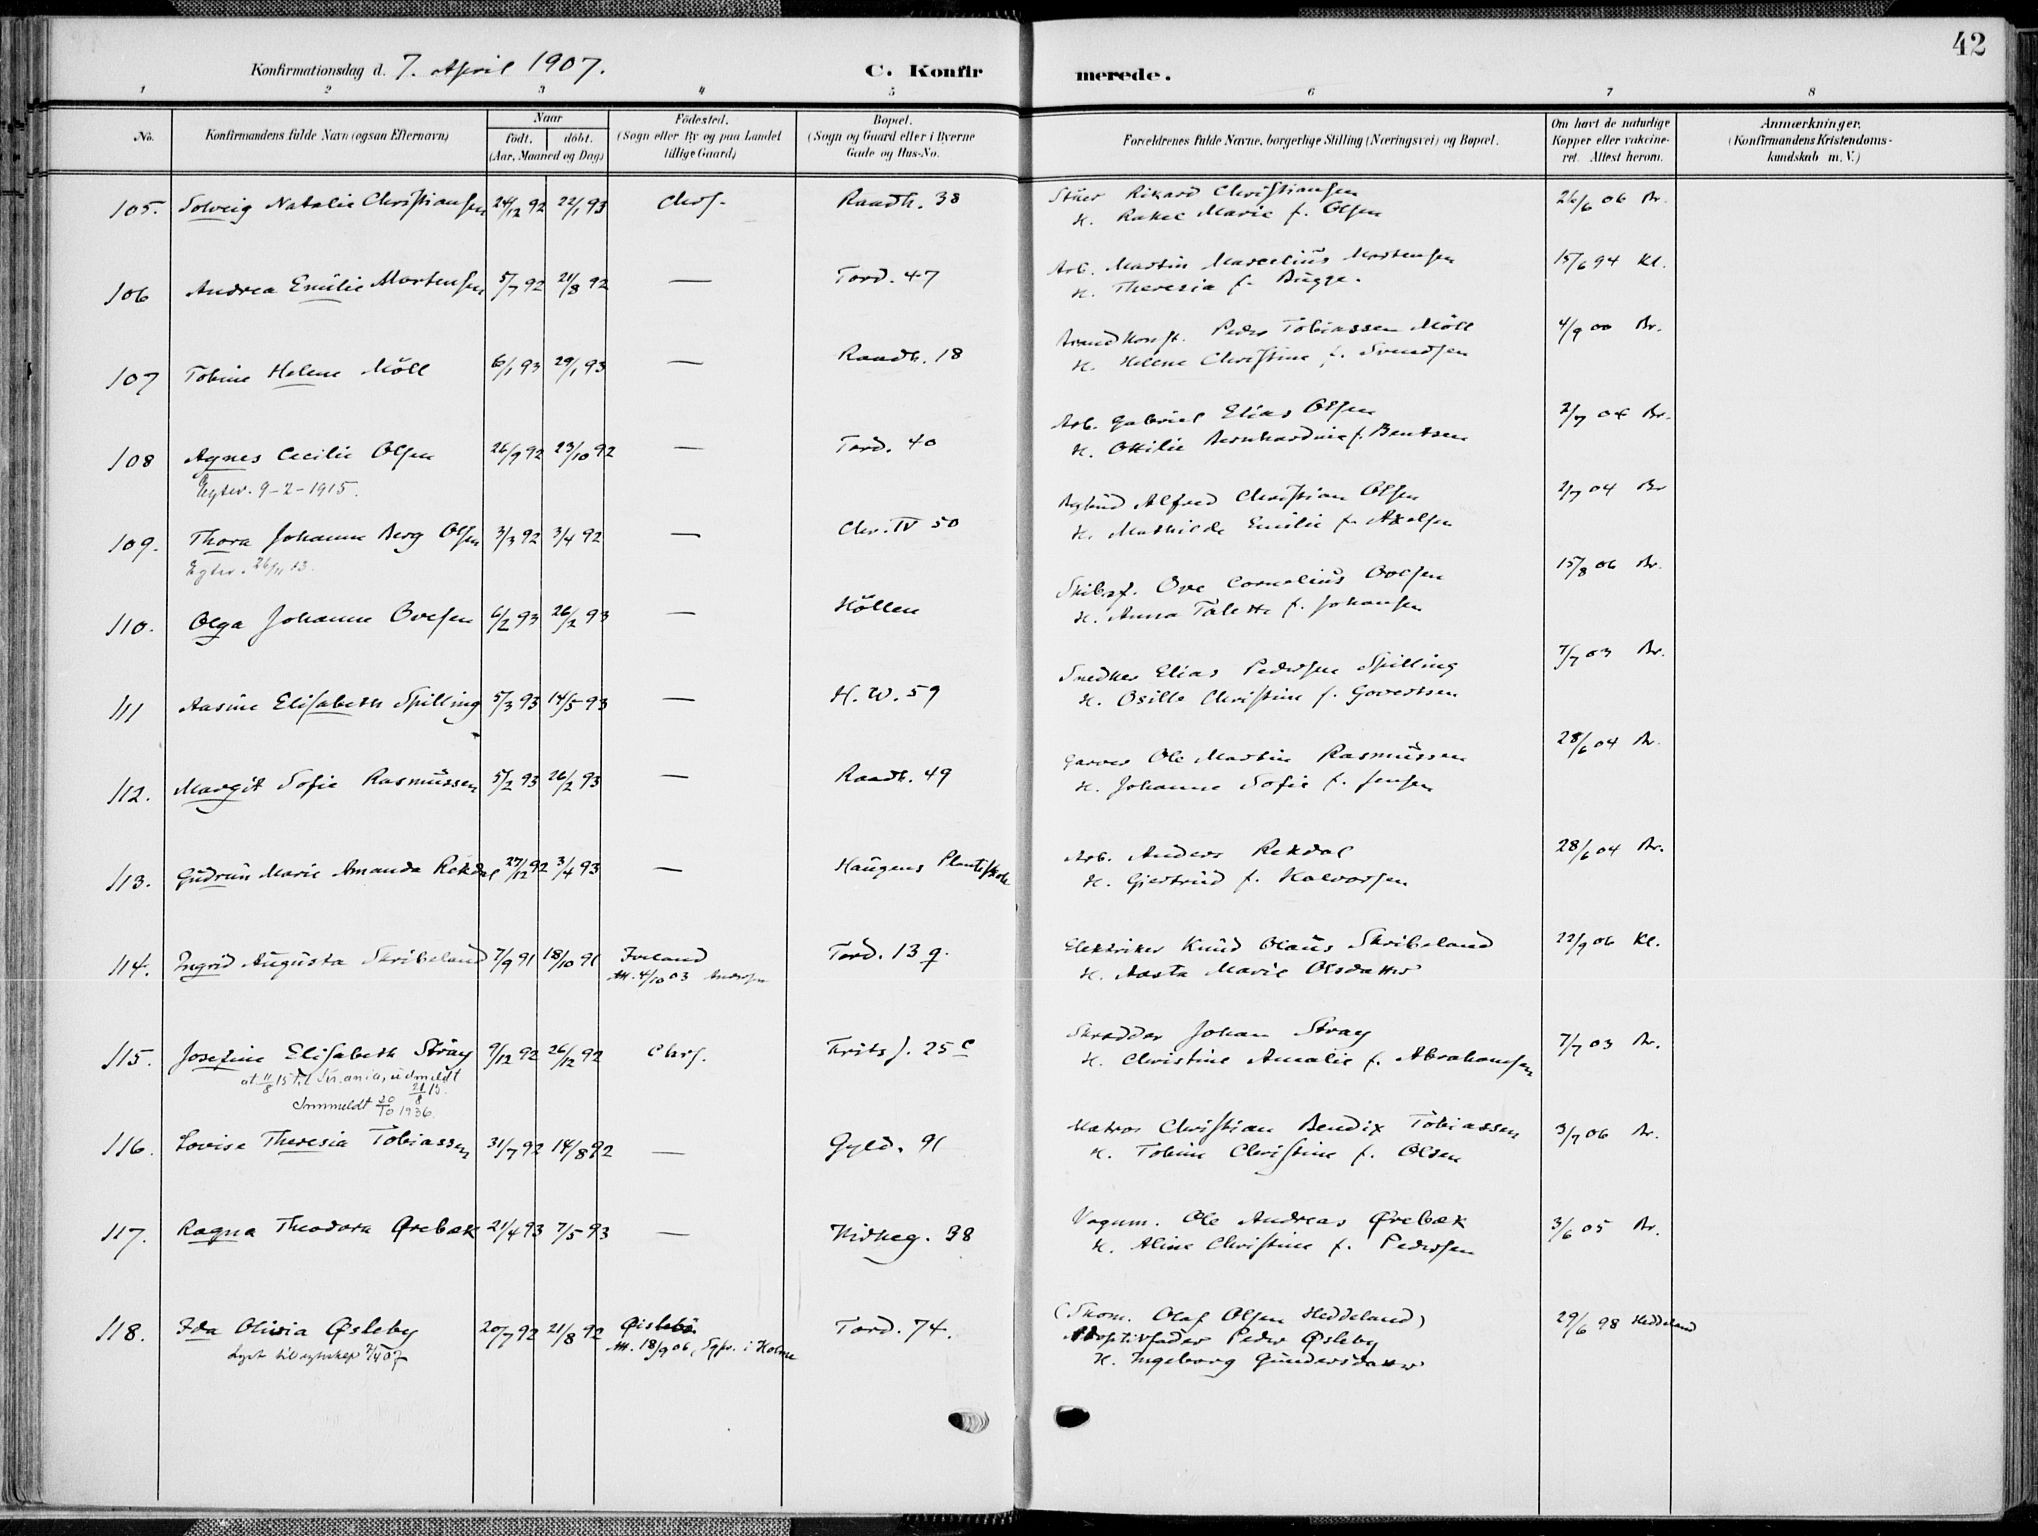 42
Konfirmationsdag d. 7. April 1907.
C. Konfirmerede.
1 2 3 4 5 6 7 8
No.
Konfirmandens fulde Navn (ogsaa Efternavn)
Naar
Født. døbt.
(Aar, Maaned og Dag)
Fødested.
(Sogn eller By og paa Landet
tillige Gaard)
Bopæl.
(Sogn og Gaard eller i Byerne
Gade og Hus-No.
Forældrenes fulde Navne, borgerlige Stilling (Næringsvei) og Bopæl.
Om havt de naturlige
Kopper eller vakcine-
ret. Attest herom.
Anmærkninger.
(Konfirmandens Kristendoms-
kundskab m. V.)
105. Solveig Natalie Christiansen 24/12 92 22/1 93 Chrs. Raadh. 38
Rikard Christiansen 26/6 06 Br.
H. Rakel Marie f. Olsen
106 Andrea Emilie Mortensen 5/7 92 21/8 92 — Tord. 47
Arb. Martin Marcelius Mortensen 15/6 94 Kl.
H. Theresia f. Bugge.
107 Tobine Helene Möll 6/1 93 29/1 93 — Raadh. 18
Brandkonst. Peder Tobiassen Möll 4/9 00 Br.
H. Helene Christine f. Svendsen
108 Agnes Cecilie Olsen 26/9 92 23/10 92 — Tord. 40
Arb. Gabriel Elias Olsen 2/7 04 Br.
H. Ottilie Bernhardine f. Bentsen
Egtev. 9-2-1915.
109. Thora Johanne Berg Olsen 3/3 92 3/4 92 — Chr. IV 50
Bybud Alfred Christian Olsen 2/7 04 Br
H. Mathilde Emilie f. Axelsen
Egtev. 26/11 13.
110. Olga Johanne Ovesen 6/2 93 26/2 93 — Höllen
Skibsf. Ove Cornelius Ovesen 15/8 06 Br.
H. Anna Talette f. Johansen
111 Aasine Elisabeth Spilling 5/3 93 14/5 93 — H. W. 59
Snedker Elias Pedersen Spilling 7/7 03 Br.
H. Osille Christine f. Govertsen
112. Margit Sofie Rasmussen 5/2 93 26/2 93 — Raadh. 49
Garver Ole Martin Rasmussen 28/6 04 Br.
H. Johanne Sofie f. Jensen
113. Gudrun Marie Amanda Rekdal 27/12 92 3/4 93 — Haugens Planteskole
Arb. Anders Rekdal 28/6 04 Br.
H. Gjertrud f. Halvorsen
114. Ingrid Augusta Skribeland 7/9 91 18/10 91 Iveland Tord. 13 q.
Elektriker Knud Olaus Skribeland 22/9 06 Kl.
Att. 4/10 03 Andersen
H. Aasta Marie Olsdatter
115. Josefine Elisabeth Stray 9/12 92 26/12 92 Chrs. Frits J. 25 c
Skrædder Johan Stray 7/7 03 Br.
H. Christine Amalie f. Abrahamsen
at. 11/8 15 til Kr.ania, udmeldt
21/8 15.
Innmeldt 20/10 1936.
116. Lovise Theresia Tobiassen 31/7 92 14/8 92 — Gyld. 91
Matros Christian Bendix Tobiassen 3/7 06 Br.
H. Tobine Christine f. Olsen
117. Ragna Theodora Ørebæk 21/4 93 7/5 93 — Kirkeg. 38
Vognm. Ole Andreas Ørebæk 3/6 05 Br.
H. Aline Christine f. Pedersen
118. Ida Olivia Øsleby 20/7 92 21/8 92 Øislebø Tord. 74.
(Skom. Olaf Olsen Heddeland) 29/6 98 Heddeland
Att. 18/9 06, Sgpr. i Holme
Adoptivfader Peder Øsleby
H. Ingeborg Gundersdatter